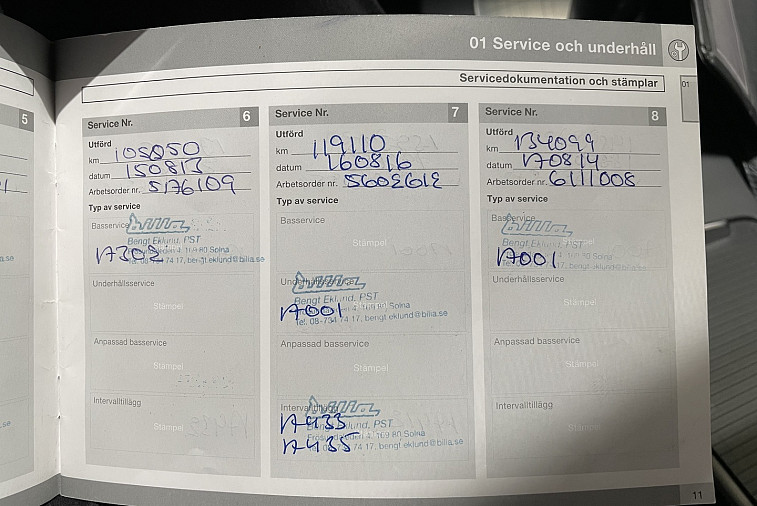 01 Service och underhåll
Servicedokumentation och stämplar
01
5
Service Nr. 6
Utförd
km 105050
datum 150813
Arbetsorder nr. 5176109
Typ av service
Basservice
bilia
Bengt Eklund, PST
4, 169 80 Solna
Tel. 08-734 74 17, bengt.eklund@bilia.se
17308
Underhållsservice
Stämpel
Anpassad basservice
Stämpel
Intervalltillägg
Stämpel
Service Nr. 7
Utförd
km 119110
datum 160816
Arbetsorder nr. 5602612
Typ av service
Basservice
Stämpel
Underhållsservice
bilia
Bengt Eklund, PST
Solna
Tel. 08-734 74 17, bengt.eklund@bilia.se
17001
Anpassad basservice
Stämpel
Intervalltillägg
bilia
Eklund, PST
4, 169 80 Solna
74 17, bengt.eklund@bilia.se
17433
17435
Service Nr. 8
Utförd
km 134099
datum 170814
Arbetsorder nr. 6111008
Typ av service
Basservice
bilia
Bengt Eklund, PST
4, 169 80 Solna
17, bengt.eklund@bilia.se
17001
Underhållsservice
Stämpel
Anpassad basservice
Stämpel
Intervalltillägg
Stämpel
11